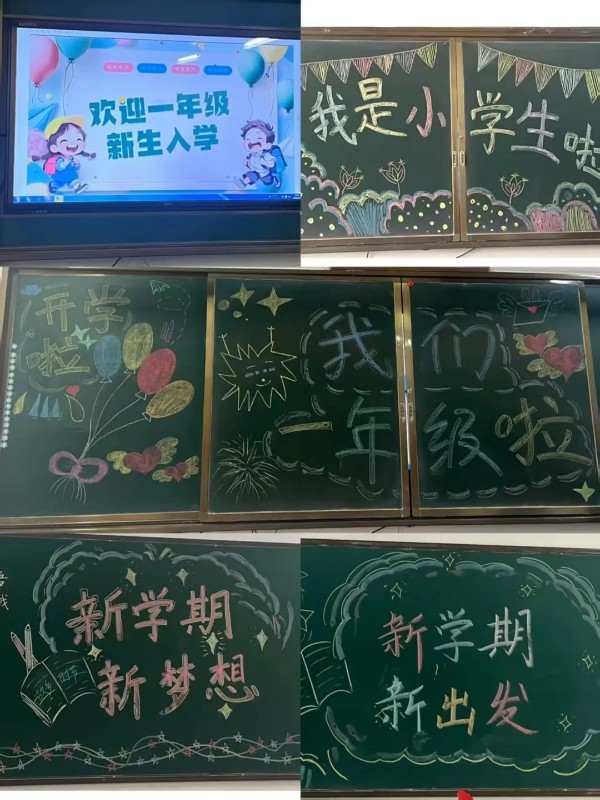 欢迎一年级
新生入学
我是小学生啦
开学
啦
我们
一年级啦
新学期
新梦想
新学期
新出发